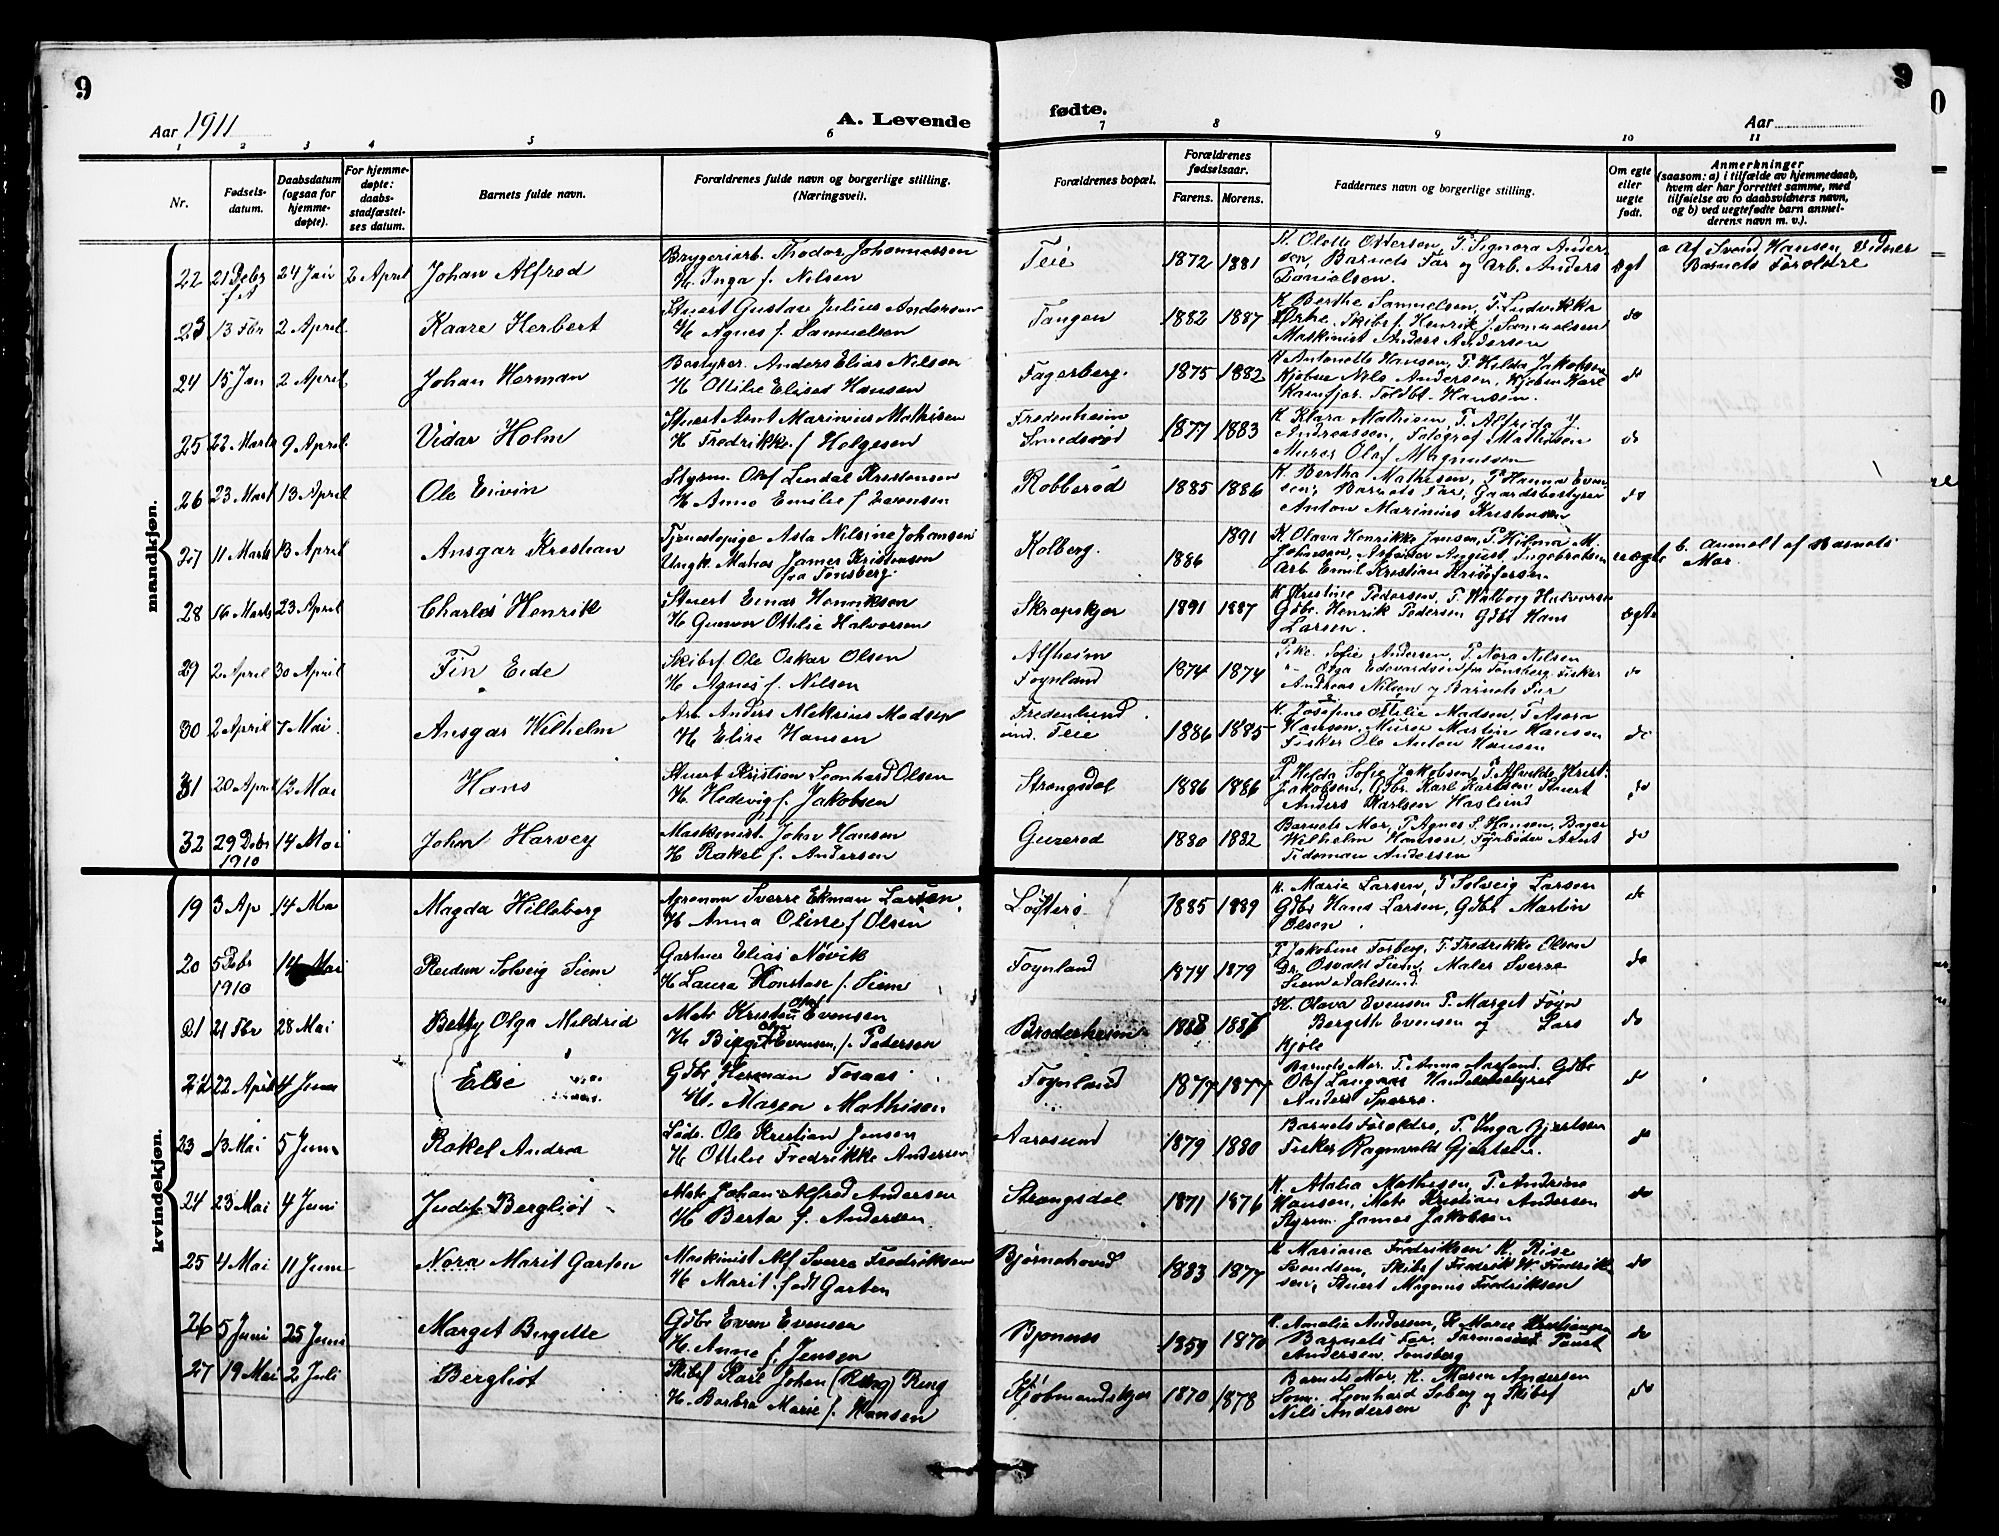 9
9
Aar 1911
A. Levende
fødte.
Aar
1 2 3 4 5 6 7 8 9 10 11
Nr.
Fødsels-
datum.
Daabsdatum
(ogsaa for
hjemme-
døpte).
For hjemme-
døpte:
daabs-
stadfæstel-
ses datum.
Barnets fulde navn.
Forældrenes fulde navn og borgerlige stilling.
(Næringsvei).
Forældrenes bopæl.
Forældrenes
fødselsaar.
Farens. Morens.
Faddernes navn og borgerlige stilling.
Om egte
eller
uegte
født.
Anmerkninger
(saasom: a) i tilfælde av hjemmedaab,
hvem der har forrettet samme, med
tilføielse av to daabsvidners navn,
og b) ved uegtefødte barn anmel-
derens navn m. v.).
mandkjøn.
22 21 Debr 24 Jan 2 April Johan Alfred
Bryggeriarb. Thodor Johannessen
H. Inga f. Nilsen
Teie 1872 1881
K. Olette Ottersen, P. Signora Ander-
sen, Barnets Far og Arb. Anders
Danielsen.
egt
a Af Svend Hansen, Vidner
Barnets Foreldre
23 13 Fbr 2 April Kaare Herbert
Stuert Gustav Julius Andersen
H. Agnes f. Samuelsen
Tangen 1882 1887
K Berthe Samuelsen, P. Ludvikke
Ørke, Skibsf. Henrik J. Samuelsen
Maskinist Anders Andersen
do
24 15 Jan 2 April Johan Herman
Bestyrer. Anders Elias Nilsen
H. Ottilie Elised Hansen
Fagerberg. 1875 1882
K Antonette Hansen, P. Helda Jakobsen
Kjøbm Nils Andersen, Kjøbm Kare
Hansen.
do
25 22 Marts 9 April Vidar Holm
Stuert Gent Marinius Mathisen
H Fredrikke f Helgesen
Fredenheim
Smedsrød 1877 1883
K Klara Mathisen, P. Alfrida J.
Andreassen, Fotograf Mathisen
Murer Olaf Magnussen
do
26 23 Mart 13 April Ole Eivin
Styrm. Olof Lindal Kristensen
H. Anna Emilie f Sørensen
Robberød 1885 1886
K. Bertha Mathisen, P. Hanna Even
sen, Barnets Far, Gaardsbestyrer
Anton Marinius Kristensen
do
27 11 Marts 13 April Ansgar Kristian
Tjenestepige Asta Nilsine Johansen
Ungk. Matros James Kristensen
fra Tønsberg.
Kolberg. 1886 1891
K Olava Henrikke Jensen, P. Hilma M.
Johnsen, August Ingebretsen
Arb Emil Kristian Kristofersen.
uegte
b. anmelt af Barnets
Mor.
28 16 Marts 23 April Charles Henrik
Stuert Einar Henriksen
H Gunvor Ottilie Halvorsen
Skrapskjær 1891 1887
K Kristine Pedersen, P. Walborg Halvorsen
Gdbr. Henrik Pedersen, Gdbr Hans
Larsen.
egte
29 2 April 30 April Fin Eide
Skibsf Ole Oskar Olsen
H. Agnes f. Nilsen
Alfheim
Føynland 1874 1874
Pike. Sofie Andersen, P. Nora Nilsen
" Olga Edevardsen fra Tønsberg. Fisker
Andreas Nilsen og Barnets Far
do
30 2 April 7 Mai. Ansgar Wilhelm
Arb Anders Aleksius Madsen
H. Elise Hansen
Fredenlund
Teie 1886 1885
K. Josefine Ottilie Madsen, P Asora
Hansen, Murer Martin Hansen
Fisker Ole Anton Hansen
do
31 20 April 12 Mai Hans
Stuert Kristian Leonhard Olsen
H. Hedevig f. Jakobsen
Strengsdal 1886 1886
P. Helda Sofie Jakobsen, P. Alvilde Krist.
Jakobsen, Gdbr. Karl Karlsen Stuert
Anders Karlsen Haslund
do
32 29 Debr 14 Mai John Harvey
1910
Maskinist. John Hansen
H Rakel f. Andersen
Guserød 1880 1882
Barnets Mor, P. Agnes S. Hansen, Bager
Wilhelm Hansen, Fyrbøder Arnt
Tideman Andersen
do
kvindekjøn.
19 3 Ap 14 Ma Magda Hilleberg
Sverre Ekman Larsen,
H. Anna Oline f Olsen
Løfterø 1885 1889
K. Marie Larsen, P Solveig Larsen
Gdbr Hans Larsen, Gdbr Martin
Olsen
do
20 5 Debr 14 Mai Reidun Solveig Siem
1910
Gartner Elias Nøvik
H Laura Konstase f. Siem
Føynland 1874 1879
P Jakobine Forberg, P. Fredrikke Olsen
Dr. Osvald Siem, Maler Sverre
Siem Aalesund
do
21 21 Fbr 28 Mai Betty Olga Mildrid
Mats Kristen Evensen
H Birgit Evensen, f. Pedersen
Broderheim 1888 1886
H. Olava Evensen P. Marget Føyn
Bergitte Evensen og Lars
Kjøle
do
22 22 April 4 Juni Else
Gdbr Herman Fosaas
H. Maren Mathisen
Føynland 1877 1877
Barnets Mor. P. Anna Aasland. Gdbr
Olaf Langaas Handelsbestyrer
Anders Sparre.
do
23 13 Mai 5 Juni Rakel Andrea
Lods. Ole Kristian Jensen
H Ottilie Fredrikke Andersen
Aarøsund 1879 1880
Barnets Foreldre, P. Inga Gjertsen
Fisker Ragnvald Gjertsen.
do
24 23 Mai 4 Juni Judit Bergliot
Mats Johan Alfred Andersen
H Berta f. Andersen.
Strengsdal 1871 1876
K. Atalia Mathisen, P. Andrine
Hansen, Mats Kristian Andersen
Styrm. James Jakobsen
do
25 4 Mai 11 Juni Nora Marit Garten
Maskinist Alf Sverre Fredriksen
H Marit. født Garten
Bjørnehoved 1883 1877
K Mariane Fredriksen K. Rise
Svendsen, Skibsf Fredrik W. Fredrik-
sen, Stuert Magnus Fredriksen
do
26 5 Juni 25 Juni Marget Birgitte
Gdbr Even Evensen
H. Anne f Jensen
Bjønnes 1859 1870
K. Amalie Andersen, K Marie Kristiansen
Barnets Far. Farmaceut
Andersen, Tønsberg
do
27 19 Mai 2 Juli Bergliot
Skibsf Karl Johan (Ring) Ring
H. Barbra Marie f. Hansen
Kjøbmandskjær 1870 1878
Barnets Mor, K. Maren Andersen
Leonhard Soberg og Skibsf
Nils Andersen
do